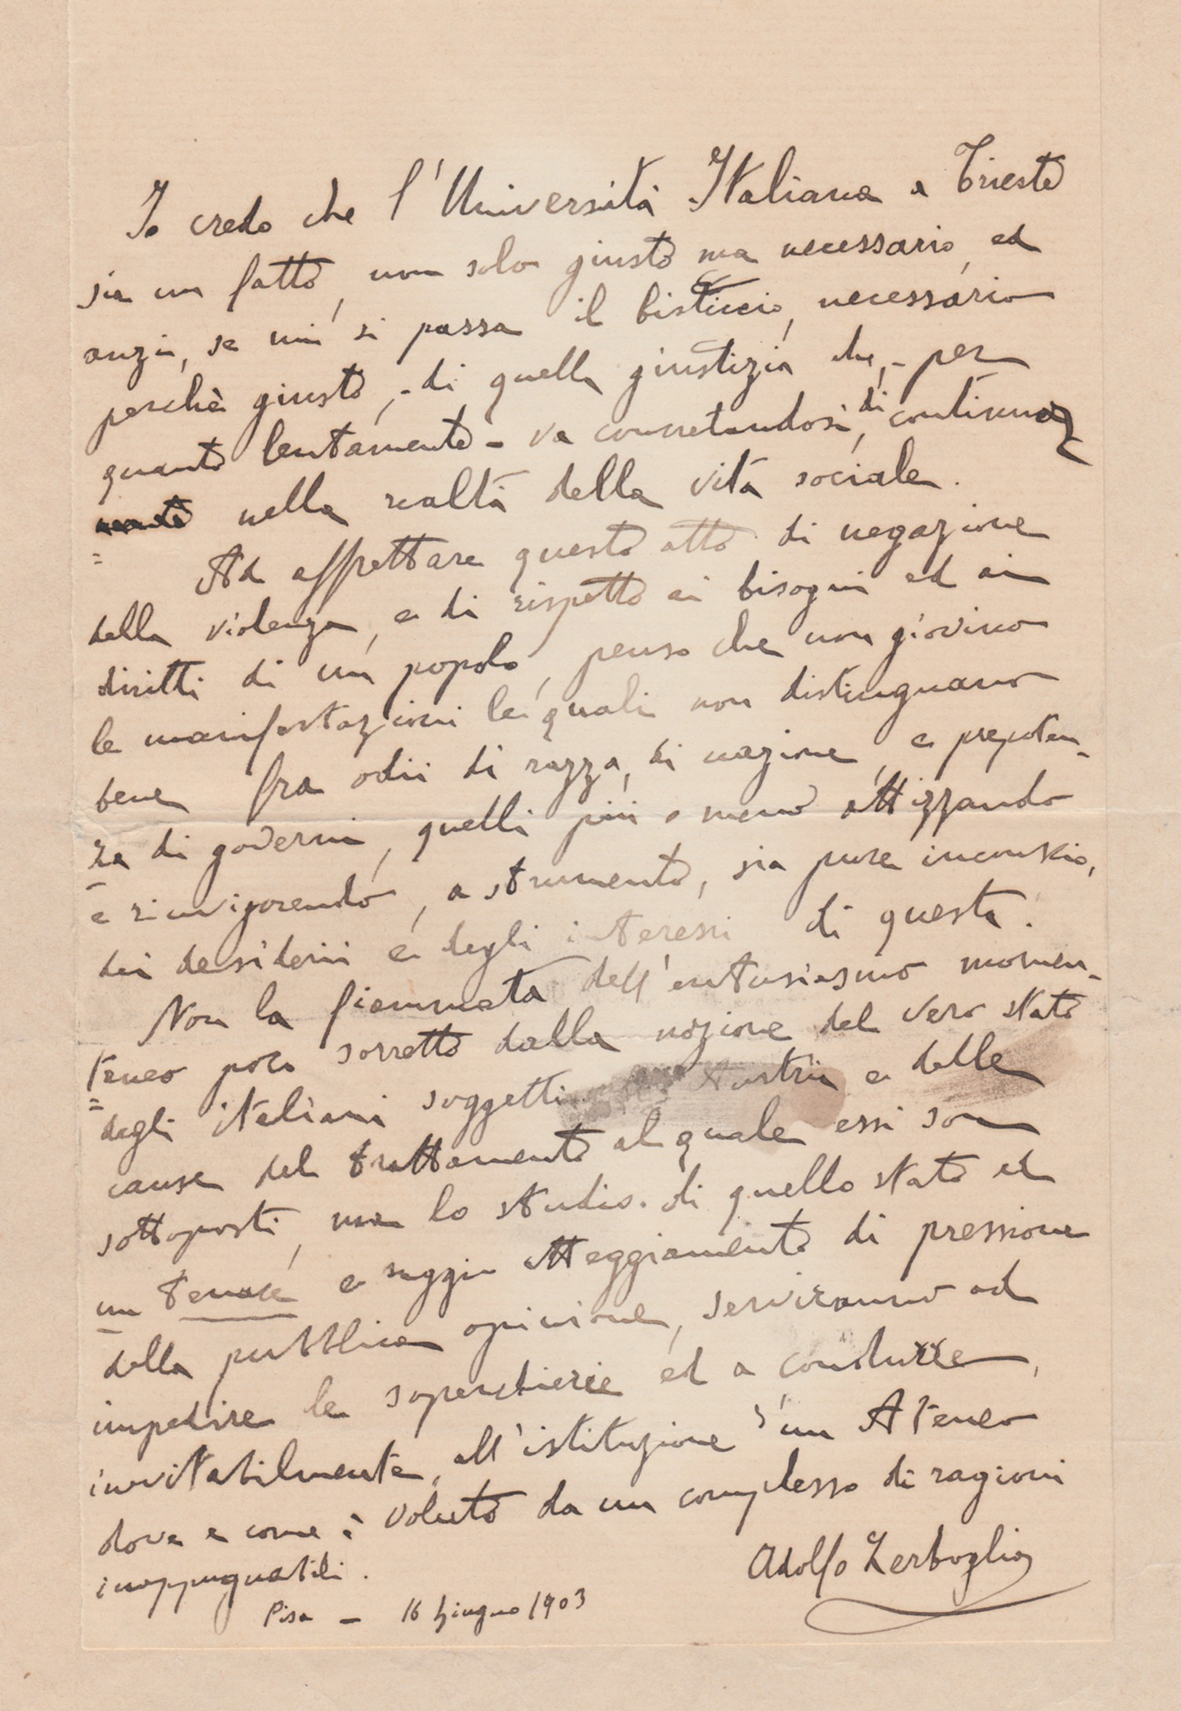 Io credo che l'Università Italiana a Trieste
sia un fatto, non solo giusto ma necessario, ed
anzi, se mi si passa il bisticcio, necessario
perchè giusto, - di quella giustizia che, - per
quanto lentamente - va concretandosi, di continuo
nella realtà della vita sociale.
Ad affrettare questo atto di negazione
della violenza, e di rispetto ai bisogni ed ai
diritti di un popolo, penso che non giovino
le manifestazioni le quali non distinguano
bene fra odii di razza, di nazione, e prepoten-
za di governi, quelli più o meno attizzando
e rinvigorendo, a strumento, sia pure inconscio,
dei desiderii e degli interessi di questa.
Non la fiammata dell'entusiasmo momen-
taneo poco sorretto dalla nozione del vero stato
degli italiani soggetti Austria e delle
cause del trattamento al quale essi son
sottoposti, ma lo studio di quello stato ed
un tenace e saggio atteggiamento di pressione
della pubblica opinione, serviranno ad
impedire le soperchierie ed a condurre,
inevitabilmente, all'istituzione d'un Ateneo
dove e come è voluto da un complesso di ragioni
inoppugnabili.
Adolfo Zerboglio
Pisa - 16 Giugno 1903